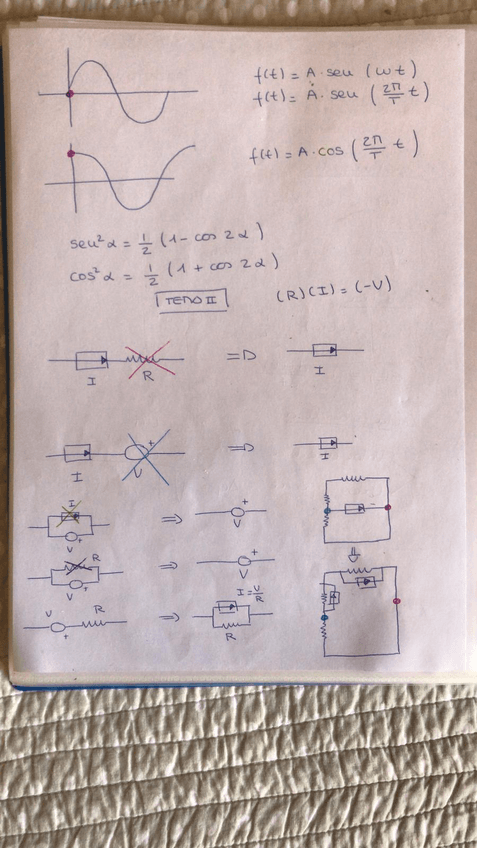 f(t) = A · sen (ωt)
f(t) = A · sen (2π/T t)
f(t) = A · cos (2π/T t)
sen²α = 1/2 (1 - cos 2α)
cos²α = 1/2 (1 + cos 2α)
TEMA II
(R)(I) = (-V)
I R => I
I V + => I
I V + => V +
R V + => V +
V + R => I = V/R R